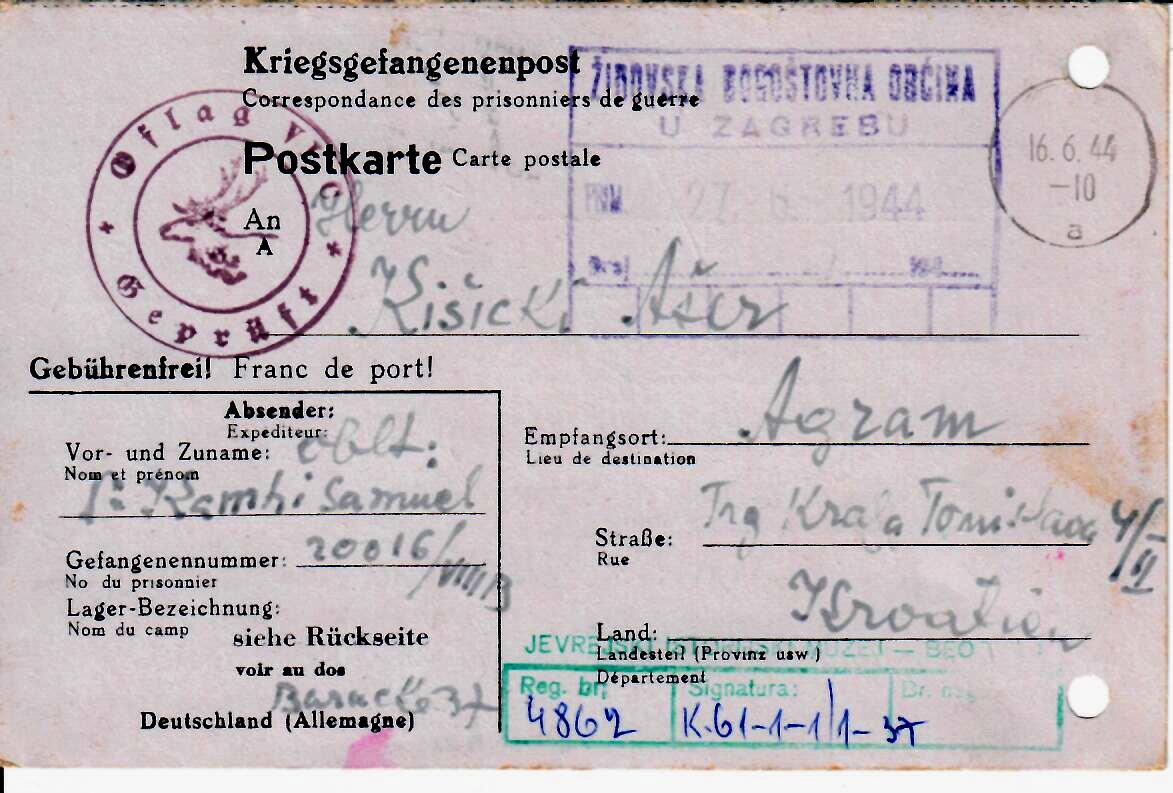 Kriegsgefangenenpost
Correspondance des prisonniers de guerre
ŽIDOVSKA BOGOŠTOVNA OBĆINA
U ZAGREBU
Postkarte Carte postale
16. 6. 44
-10
a
Oflag VI C
Geprüft
PRIM. 27. 1944
Broj
An Herrn
A
Kišicki Ašer
Gebührenfrei! Franc de port!
Absender:
Expediteur:
Vor- und Zuname: Oblt:
Nom et prénom
Kamhi Samuel
Gefangenennummer: 20016/VIII/3
No du prisonnier
Lager-Bezeichnung:
Nom du camp
siehe Rückseite
voir au dos
Baracke 37
Deutschland (Allemagne)
Empfangsort: Agram
Lieu de destination
Straße: Trg Kralja Tomislava 4/II
Rue
Land: Kroatien
JEVREJSKI ISTORIJSKI MUZEJ — BEO
Landesteil (Provinz usw.)
Département
Reg. br. 4862
Signatura: K.61-1-1/1-37